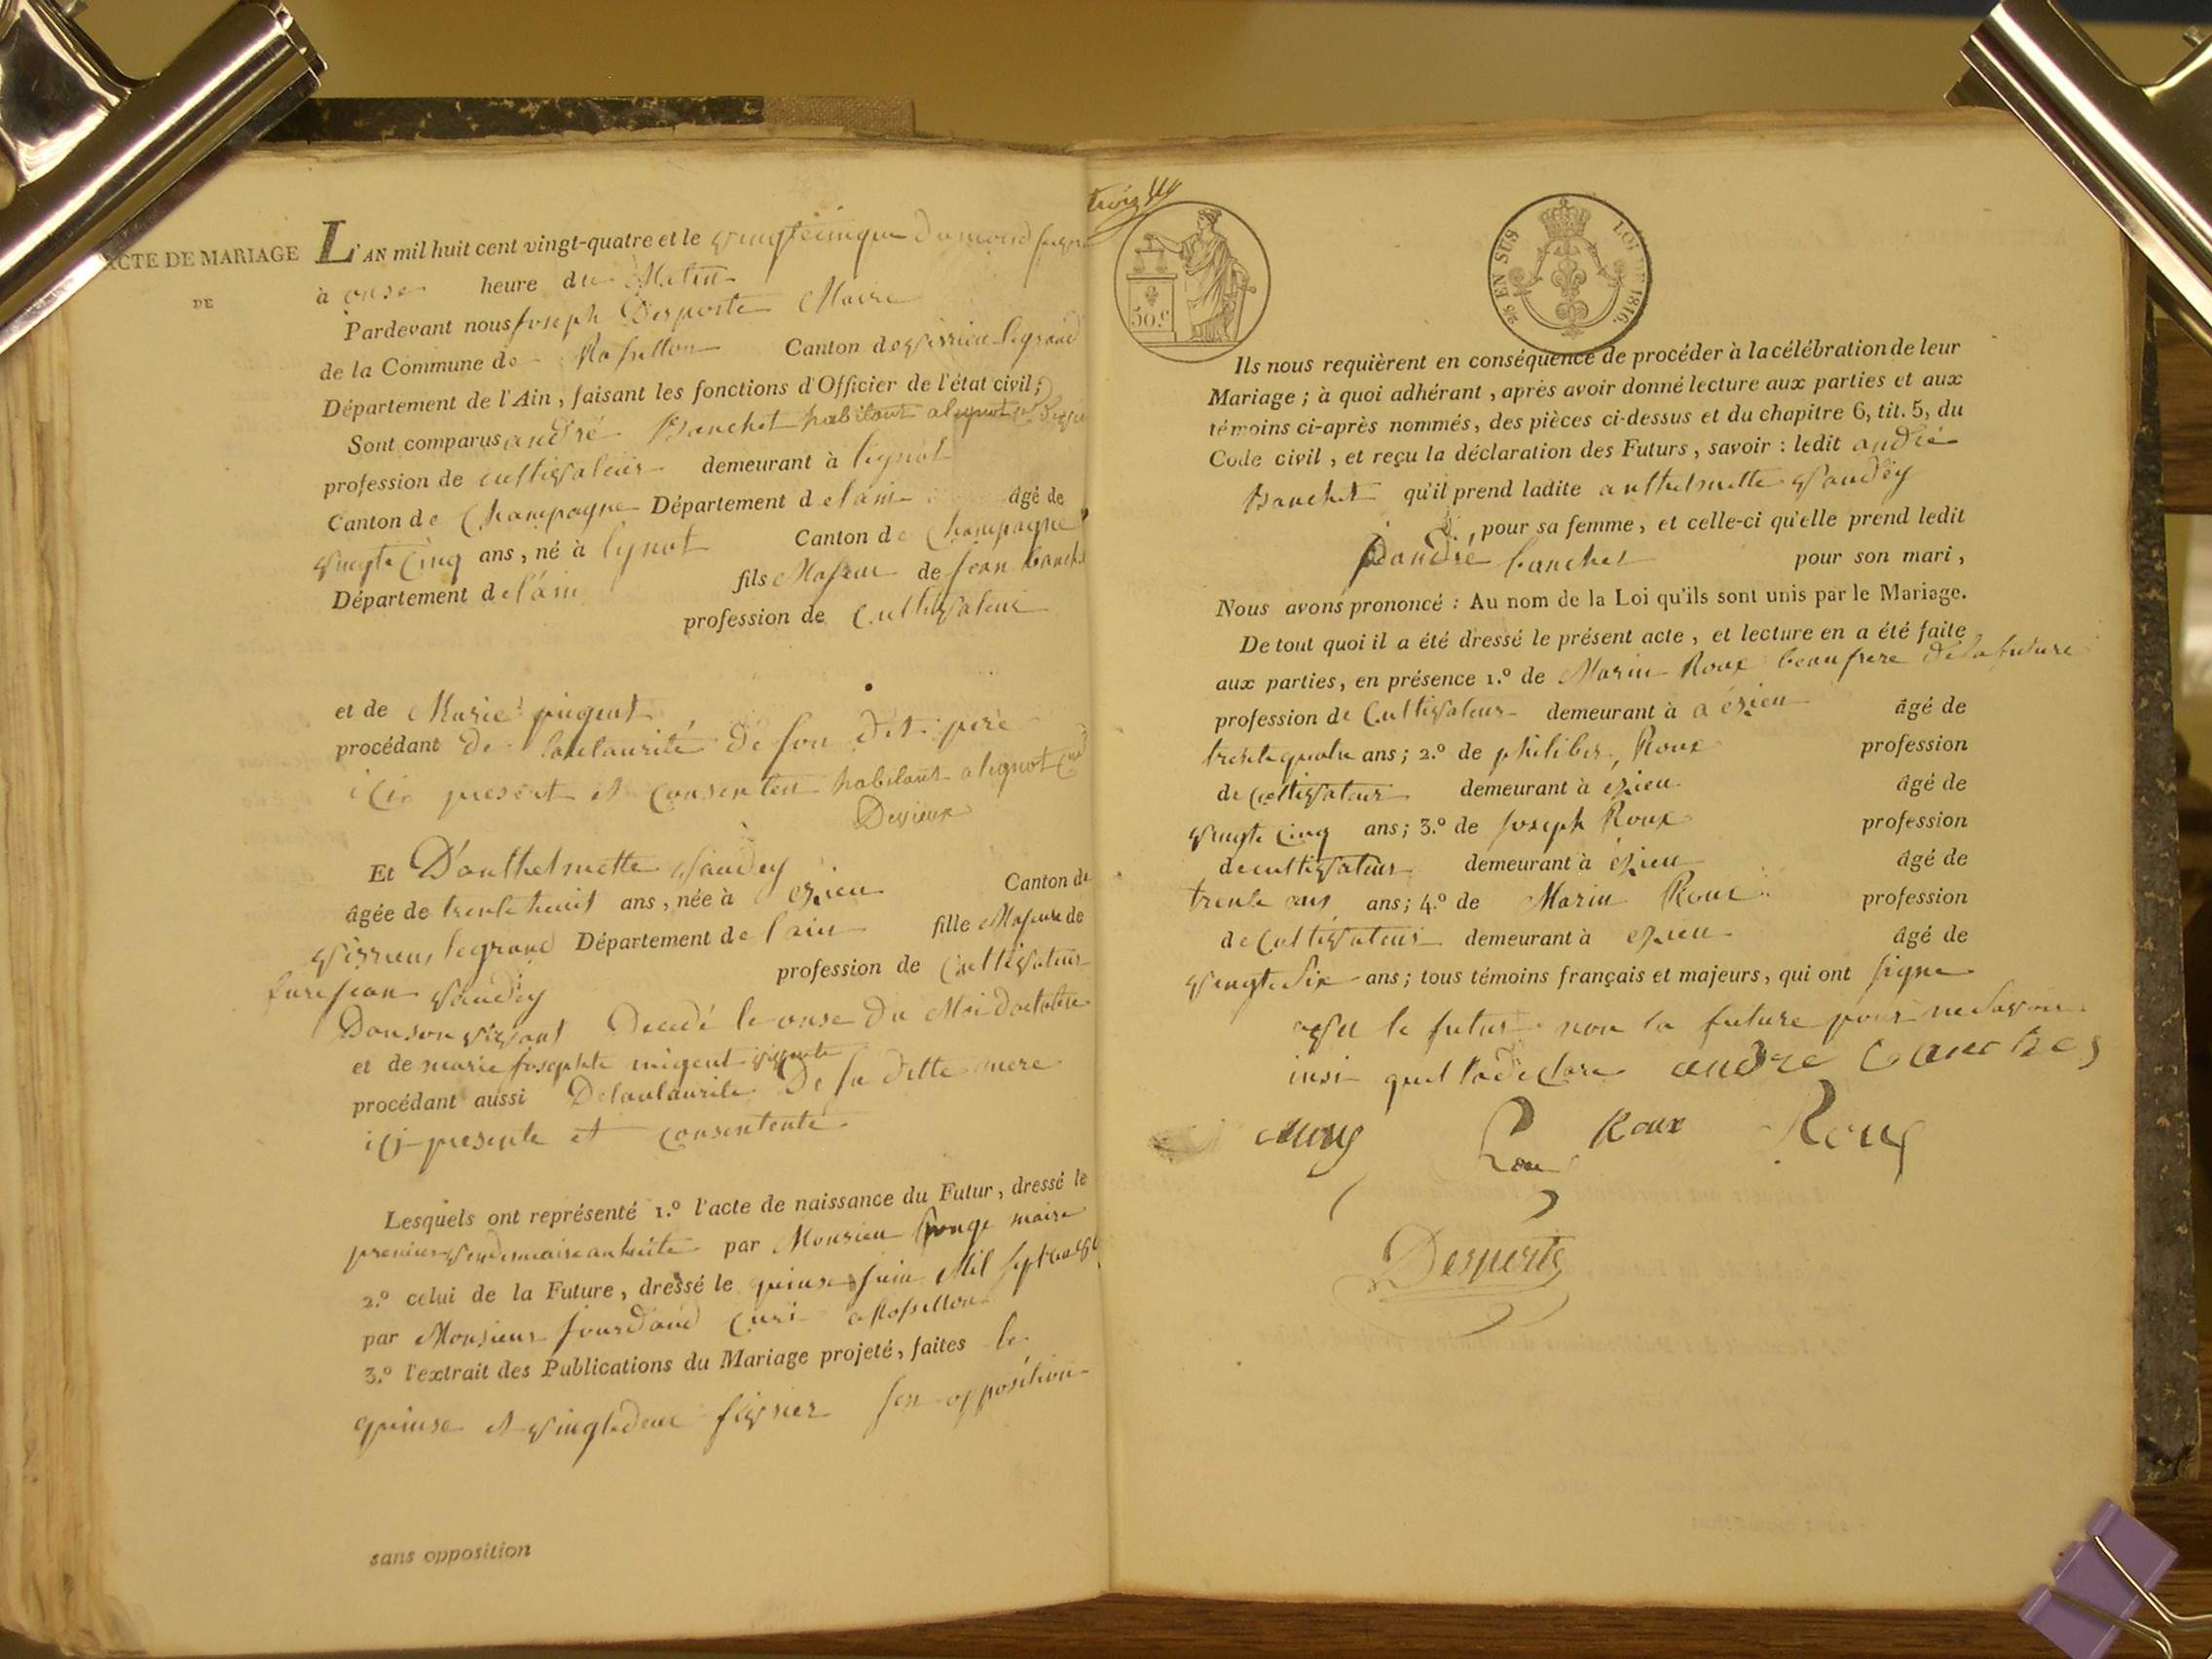 ACTE DE MARIAGE
DE
L'AN mil huit cent vingt-quatre et le vingt cinque du mois
à onse heure du Matin
Pardevant nous Joseph Desporte Maire
de la Commune de Rossillon Canton de virieu legrand
Département de l'Ain, faisant les fonctions d'Officier de l'état civil;
Sont comparus andré Banchet habitant a lignot
profession de cultivateur demeurant à lignot
Canton de Champagne Département de lain âgé de
vingt Cinq ans, né à lignot Canton de Champagne
Département de l'ain fils Majeur de jean banchet
profession de Cultivateur
et de Marie pugeat
procédant de lautaurité de son dit père
ici present et consentan habitant a lignot
Devieux
Et D'anthelmette vaudey
âgée de trente huit ans, née à ezieu Canton de
virieu legrand Département de l'ain fille Majeure de
jean vaudey profession de Cultivateur
Dousonvivant Decedé le onse du Moi doctobre
et de marie josephte migeat vivante
procédant aussi Delautaurite De sa ditte mere
ici presente et consentente
Lesquels ont représenté 1.º l'acte de naissance du Futur, dressé le
premier vendemaire an huite par Monsieu maire
2.º celui de la Future, dressé le quinse juin Mil sept
par Monsieur jourdand Curé a Rossillon
3.º l'extrait des Publications du Mariage projeté, faites le
quinse et vingtdeux févriez sen opposition
sans opposition
trois
50.c
25 EN SUS
LOI DE 1816.
Ils nous requièrent en conséquence de procéder à la célébration de leur
Mariage; à quoi adhérant, après avoir donné lecture aux parties et aux
témoins ci-après nommés, des pièces ci-dessus et du chapitre 6, tit. 5, du
Code civil, et reçu la déclaration des Futurs, savoir : ledit andré
Banchet qu'il prend ladite anthelmette vaudey
pour sa femme, et celle-ci qu'elle prend ledit
Dandré banchet pour son mari,
Nous avons prononcé : Au nom de la Loi qu'ils sont unis par le Mariage.
De tout quoi il a été dressé le présent acte, et lecture en a été faite
aux parties, en présence 1.º de Marin Roux beaufrere dela future
profession de Cultivateur demeurant à a ézieu âgé de
trente quatre ans; 2.º de philiber Roux profession
de Cultivateur demeurant à ezieu âgé de
vingt Cinq ans; 3.º de joseph Roux profession
de cultivateur demeurant à ézieu âgé de
trente ans ans; 4.º de Marin Roux profession
de Cultivateur demeurant à ezieu âgé de
vingt Six ans; tous témoins français et majeurs, qui ont signe
avec le futur non la future pour ne savoir
insi quel la declare andre banchet
Roux Roux
Desporte